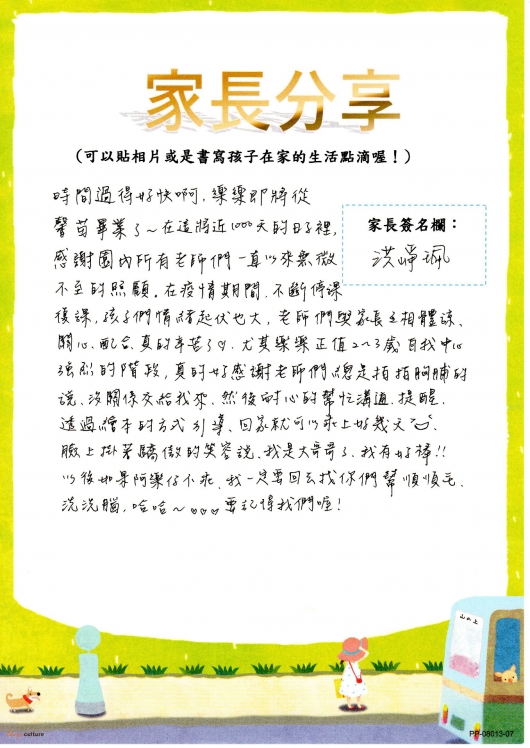 家長分享
(可以貼相片或是書寫孩子在家的生活點滴喔!)
時間過得好快啊,樂樂即將從
馨苗畢業了~在這將近1000天的日子裡,
家長簽名欄:
感謝園內所有老師們一直以來無微
洪崢珮
不至的照顧。在疫情期間,不斷停課
復課,孩子們情緒起伏也大,老師們與家長互相體諒、
關心、配合,真的辛苦了♡。尤其樂樂正值2~3歲自我中心
強烈的階段,真的好感謝老師們總是拍拍胸脯的
說,沒關係交給我來,然後耐心的幫忙溝通、提醒、
透過繪本的方式引導、回家就可以乖上好幾天
臉上掛著驕傲的笑容說、我是大哥哥了、我有好棒!!
以後如果阿樂仔不乖,我一定要回去找你們幫順順毛、
洗洗腦,哈哈~♡♡♡要記得我們喔!
山水上
culture
PP-08013-07